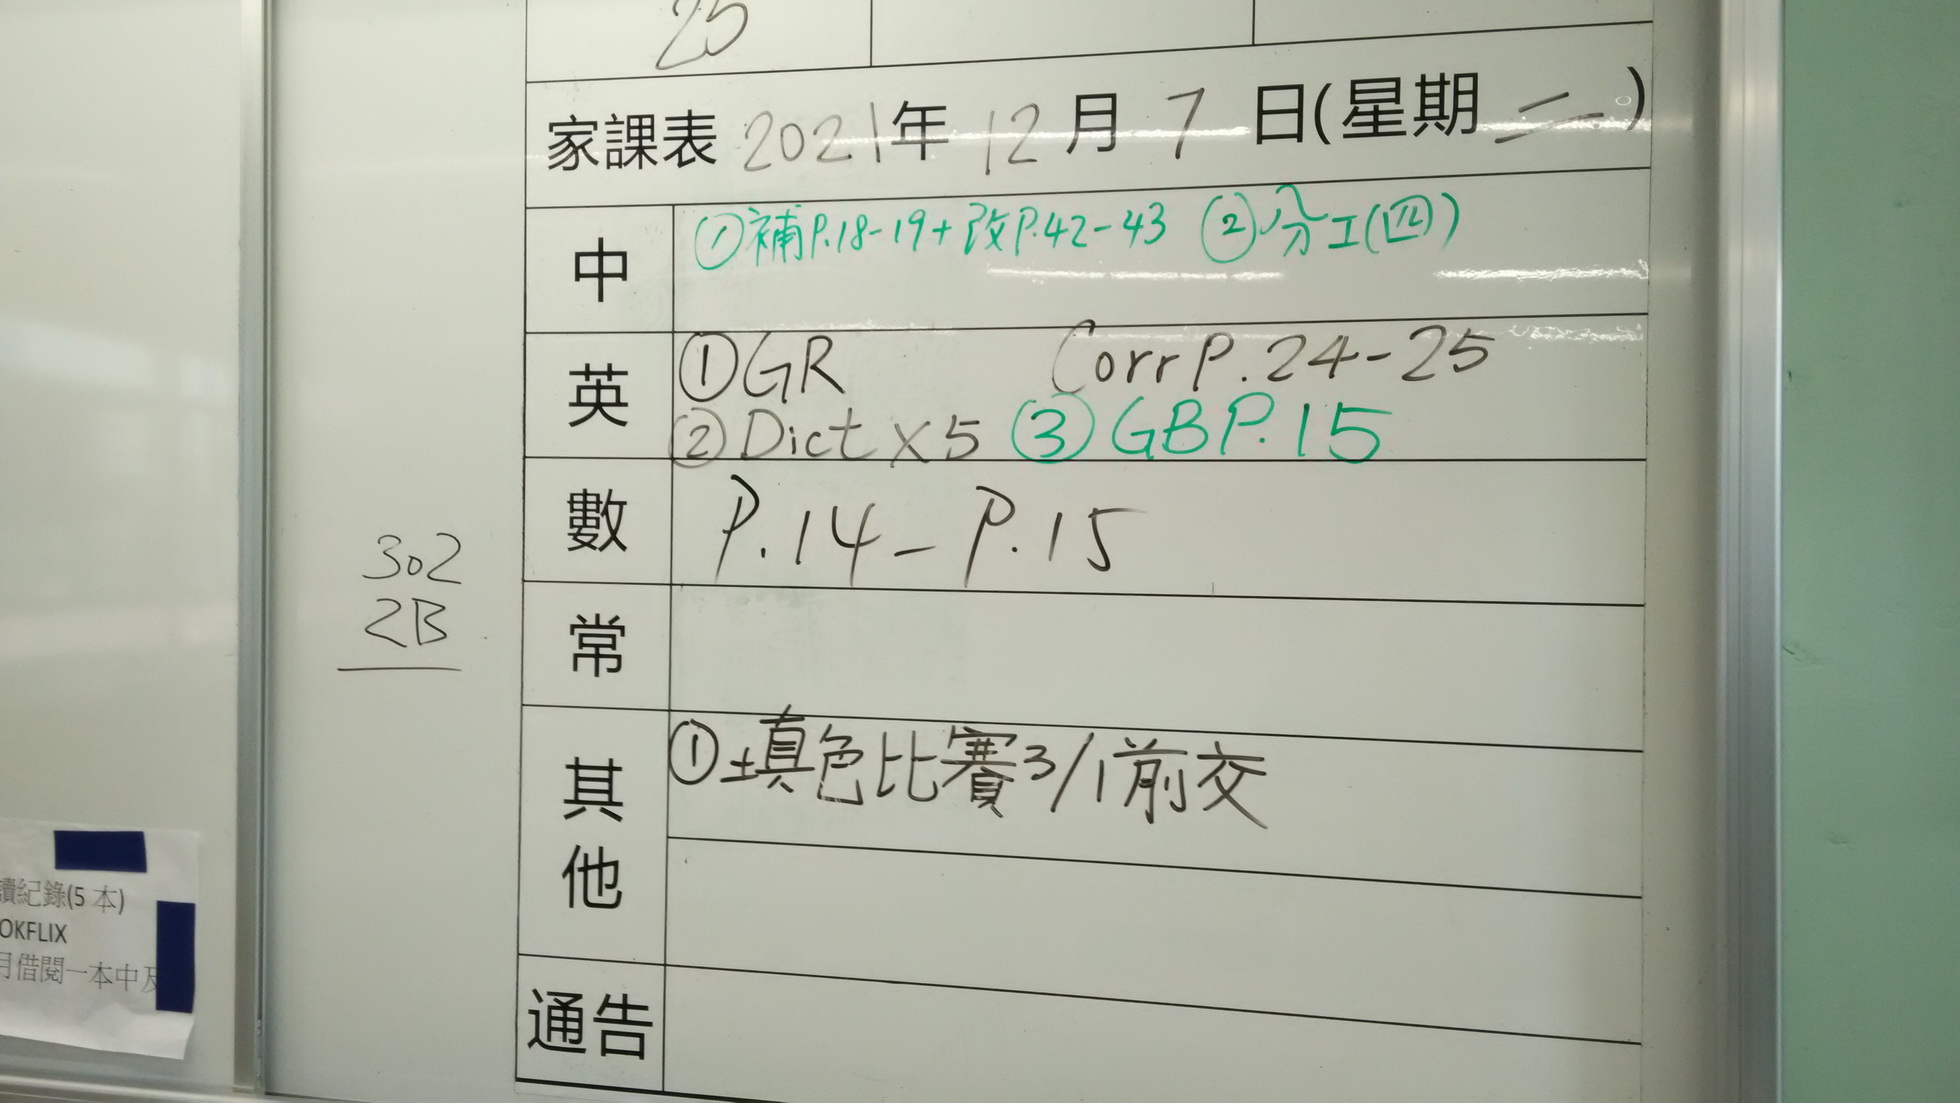 25
家課表 2021年 12月 7日(星期二)
中
①補P.18-19+改P.42-43 ②分工(四)
英
①GR Corr P.24-25
②Dict x5 ③GBP.15
數
P.14-P.15
常
其他
①填色比賽3/1前交
通告
302
2B
讀紀錄(5本)
OKFLIX
月借閱一本中及